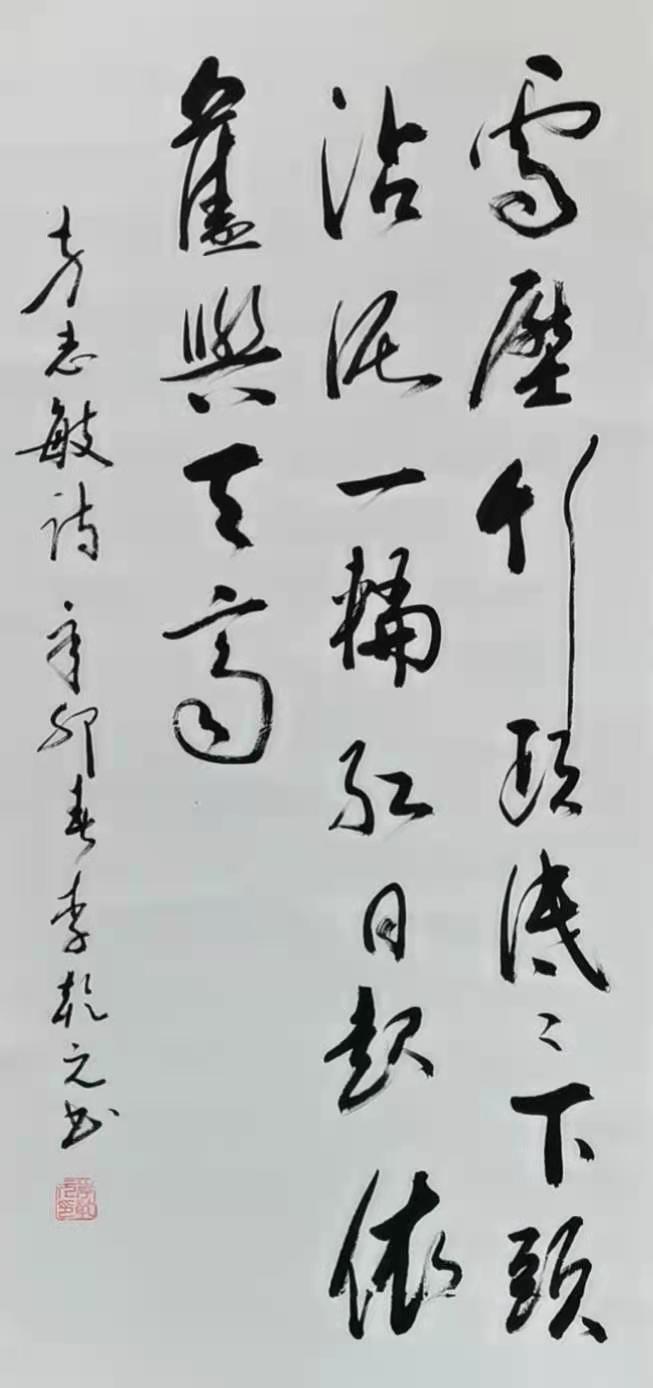 雪壓竹頭低〻下頭
沾泥一輪紅日起依
舊與天齊
方志敏詩 辛卯春李乾元书